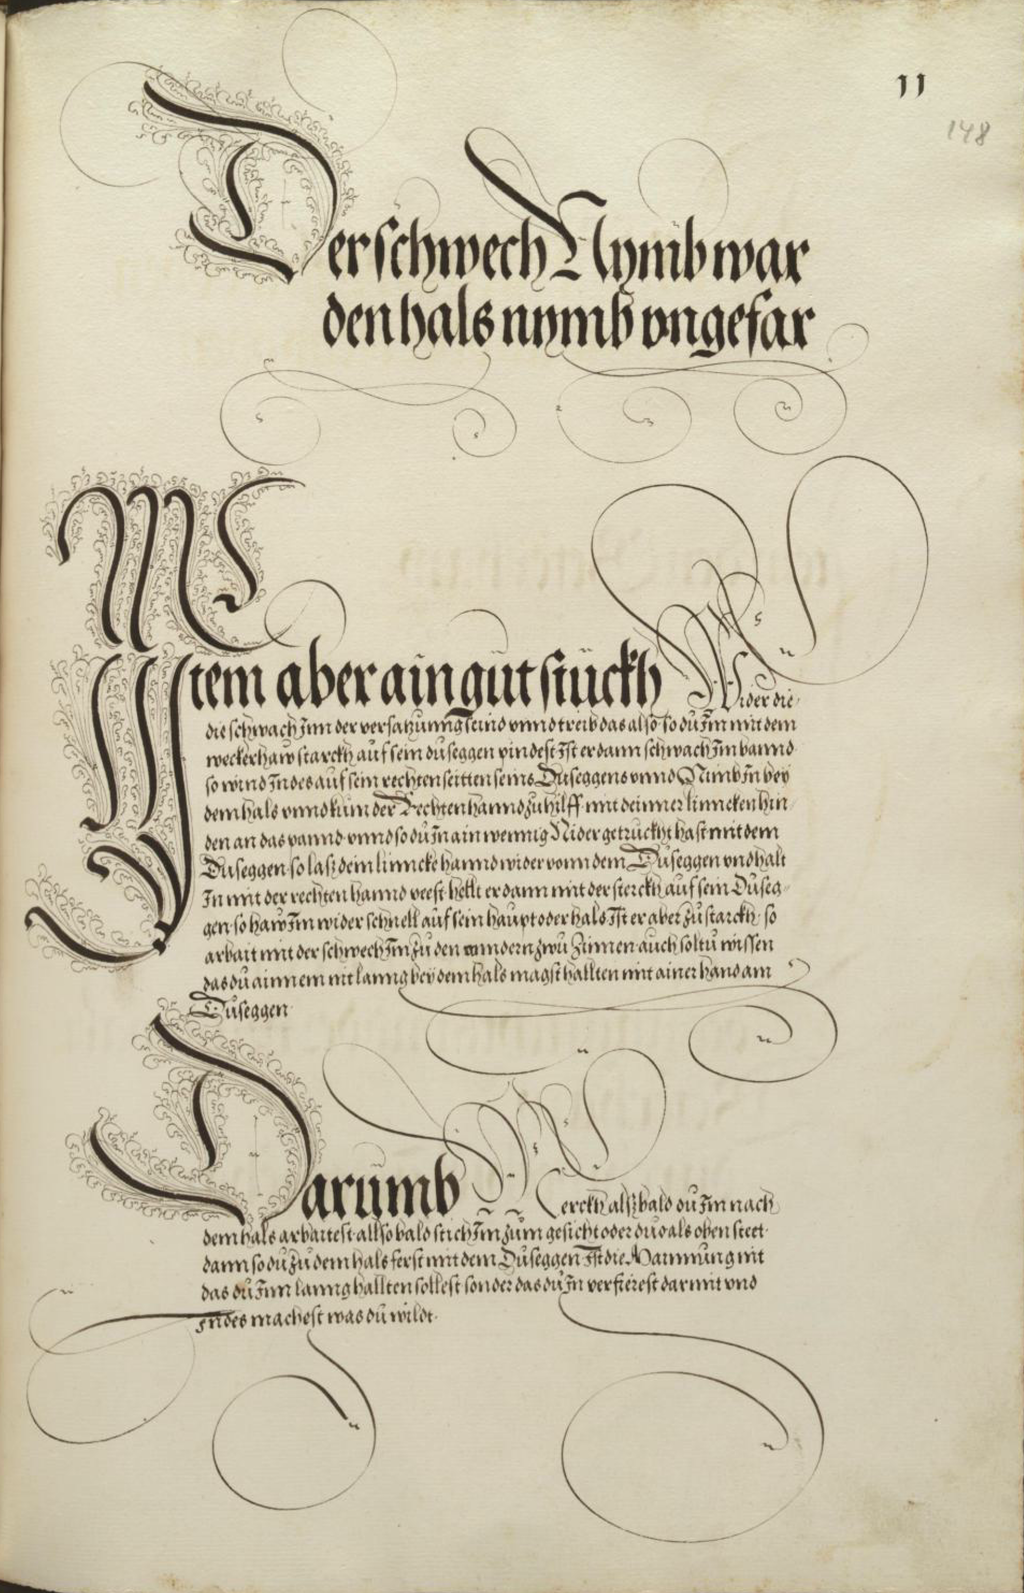 11
148
Der schwech Nymb war
den hals nymb vngefar
Ittem aber ain gut stückh Wider die
die schwach Inn der versatzunng seind vnnd treib das also so du Im mit dem
weckerhaw starckh auf sein duseggen pindest Ist er dann schwach Im bannd
so wind Indes auf sein rechten seitten seins Duseggens vnnd Nimb In bey
dem hals vnnd kum der Rechten hannd zu hilff mit deinner linncken hin
den an das pannd vnnd so du In ain wennig Nider getruckht hast mit dem
Duseggen so lasz dein linncke hannd wider vonn dem Duseggen vnd halt
In mit der rechten hannd veest hellt er dann mit der sterckh auf sein Duseg
gen so haw Im wider schnell auf sein haupt oder hals Ist er aber zu starckh so
arbait mit der schwech Im zu den anndern zwu Zinnen auch soltu wissen
das du ainnem nit lanng bey dem hals magst hallten mit ainer hand am
Duseggen
Darumb Merckh alsz bald du Im nach
dem hals arbaitest allso bald stich Im zum gesicht oder du als oben steet
dann so du zu dem hals ferst mit dem Duseggen Ist die Mainnung nit
das du Inn lanng hallten sollest sonder das du In verfierest darmit vnd
Indes machest was du wildt